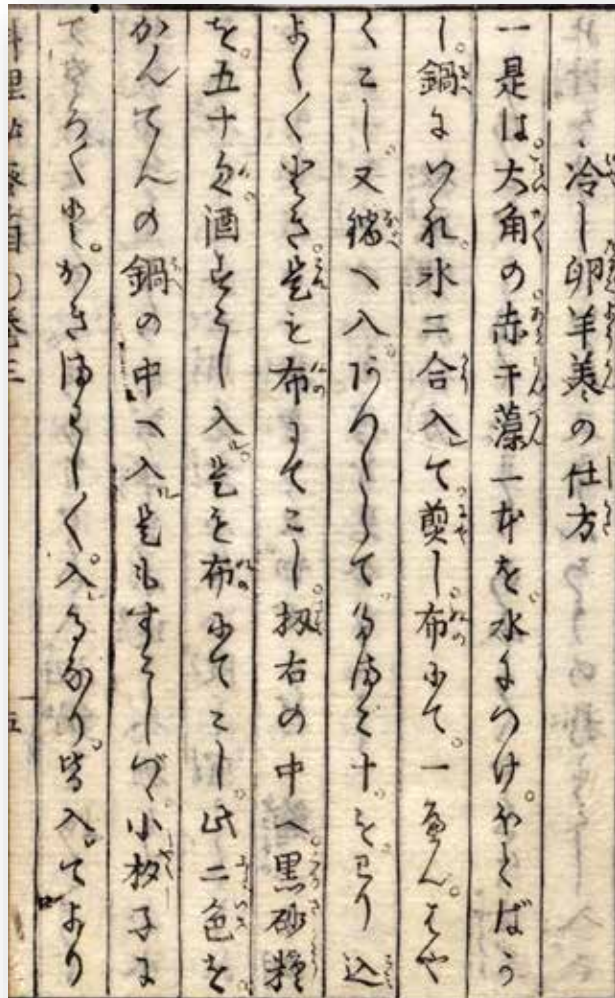 冷し卵羊羹の仕方
一是は大角の赤干藻一本を。水につけ。ほとばか
し。鍋にいれ。水二合入て煎し。布にて。一へん。はや
くこし。又鍋へ入。あつくして。たまご十。をわり込
よく〱とき。是を布にてこし。扨右の中へ黒砂糖
を。五十匁。酒すこし入。是を布にてこし。此二色を
かんてんの鍋の中へ入。是もすこしづゝ小杓子に
てそろ〱と。かきまわし〱。入るなり。皆入。てより